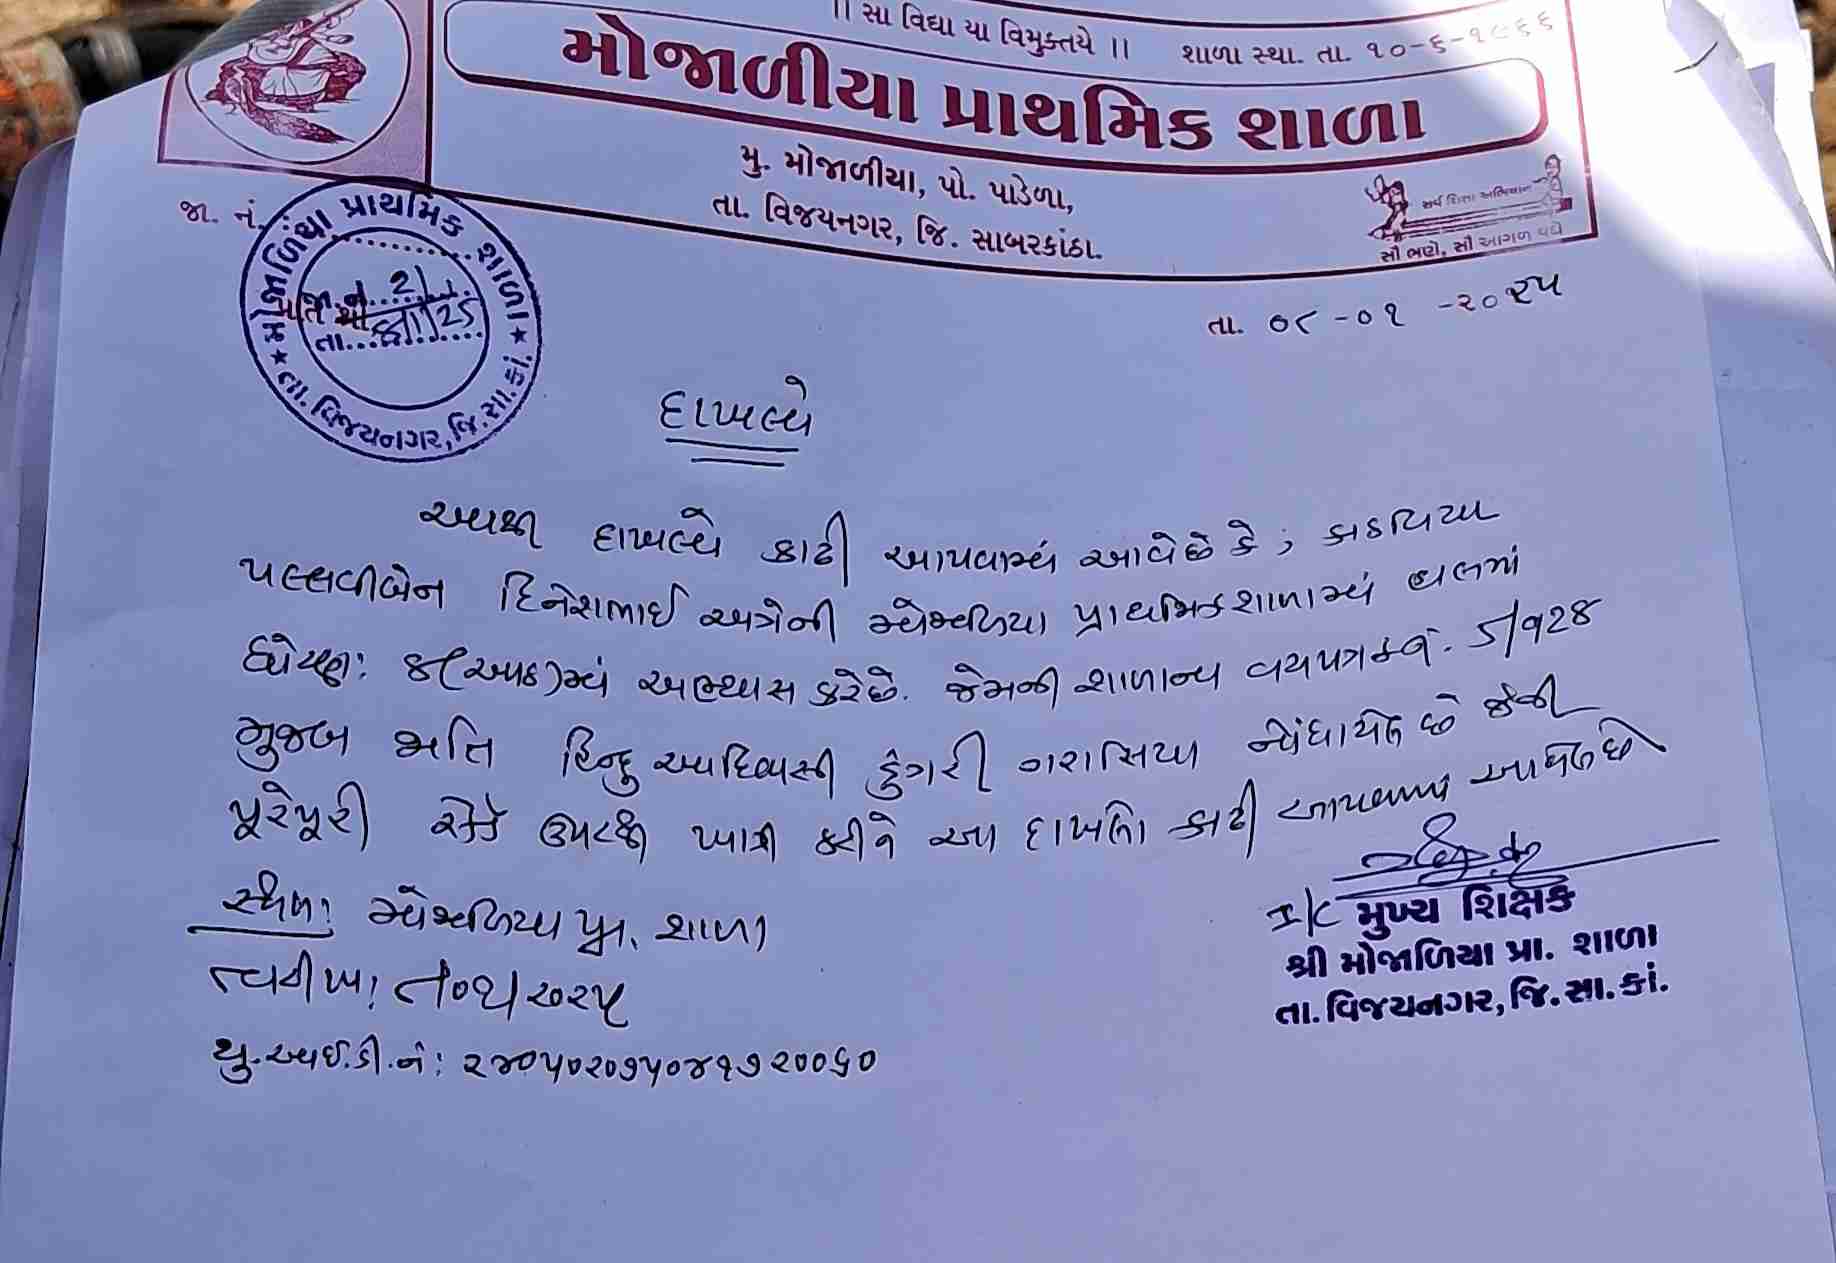 ।। સા વિદ્યા યા વિમુક્તયે ।।
શાળા સ્થા. તા. ૧૦-૬-૧૯૬૬
મોજાળીયા પ્રાથમિક શાળા
મુ. મોજાળીયા, પો. પાડેળા,
તા. વિજયનગર, જિ. સાબરકાંઠા.
સર્વ શિક્ષા અભિયાન
સૌ ભણે, સૌ આગળ વધે
જા. નં.
મોજાળિયા પ્રાથમિક શાળા
જા.નં. 2
પ્રતિ શ્રી
તા. 8/1/25
તા. વિજયનગર, જિ. સા. કાં.
તા. ૦૮-૦૧-૨૦૨૫
દાખલો
આથી દાખલો કાઢી આપવામાં આવે છે કે; કાઠવિયા
પલ્લવીબેન દિનેશભાઈ અત્રેની મોજાળિયા પ્રાથમિક શાળામાં હાલમાં
ધોરણ: ૮(આઠ)માં અભ્યાસ કરે છે. જેમની શાળાના વયપત્રક નં. 5/928
મુજબ જાતિ હિન્દુ આદિવાસી ડુંગરી ગરાસિયા નોંધાયેલ છે જેની
પૂરેપૂરી રેકર્ડ ઉપરથી ખાત્રી કરીને આ દાખલો કાઢી આપવામાં આવેલ છે
સ્થળ: મોજાળિયા પ્રા. શાળા
તારીખ:
યુ.આઈ.ડી.નં: ૨૪૦૫૦૨૦૭૫૦૪૧૭૨૦૦૬૦
I/C મુખ્ય શિક્ષક
શ્રી મોજાળિયા પ્રા. શાળા
તા. વિજયનગર, જિ. સા. કાં.